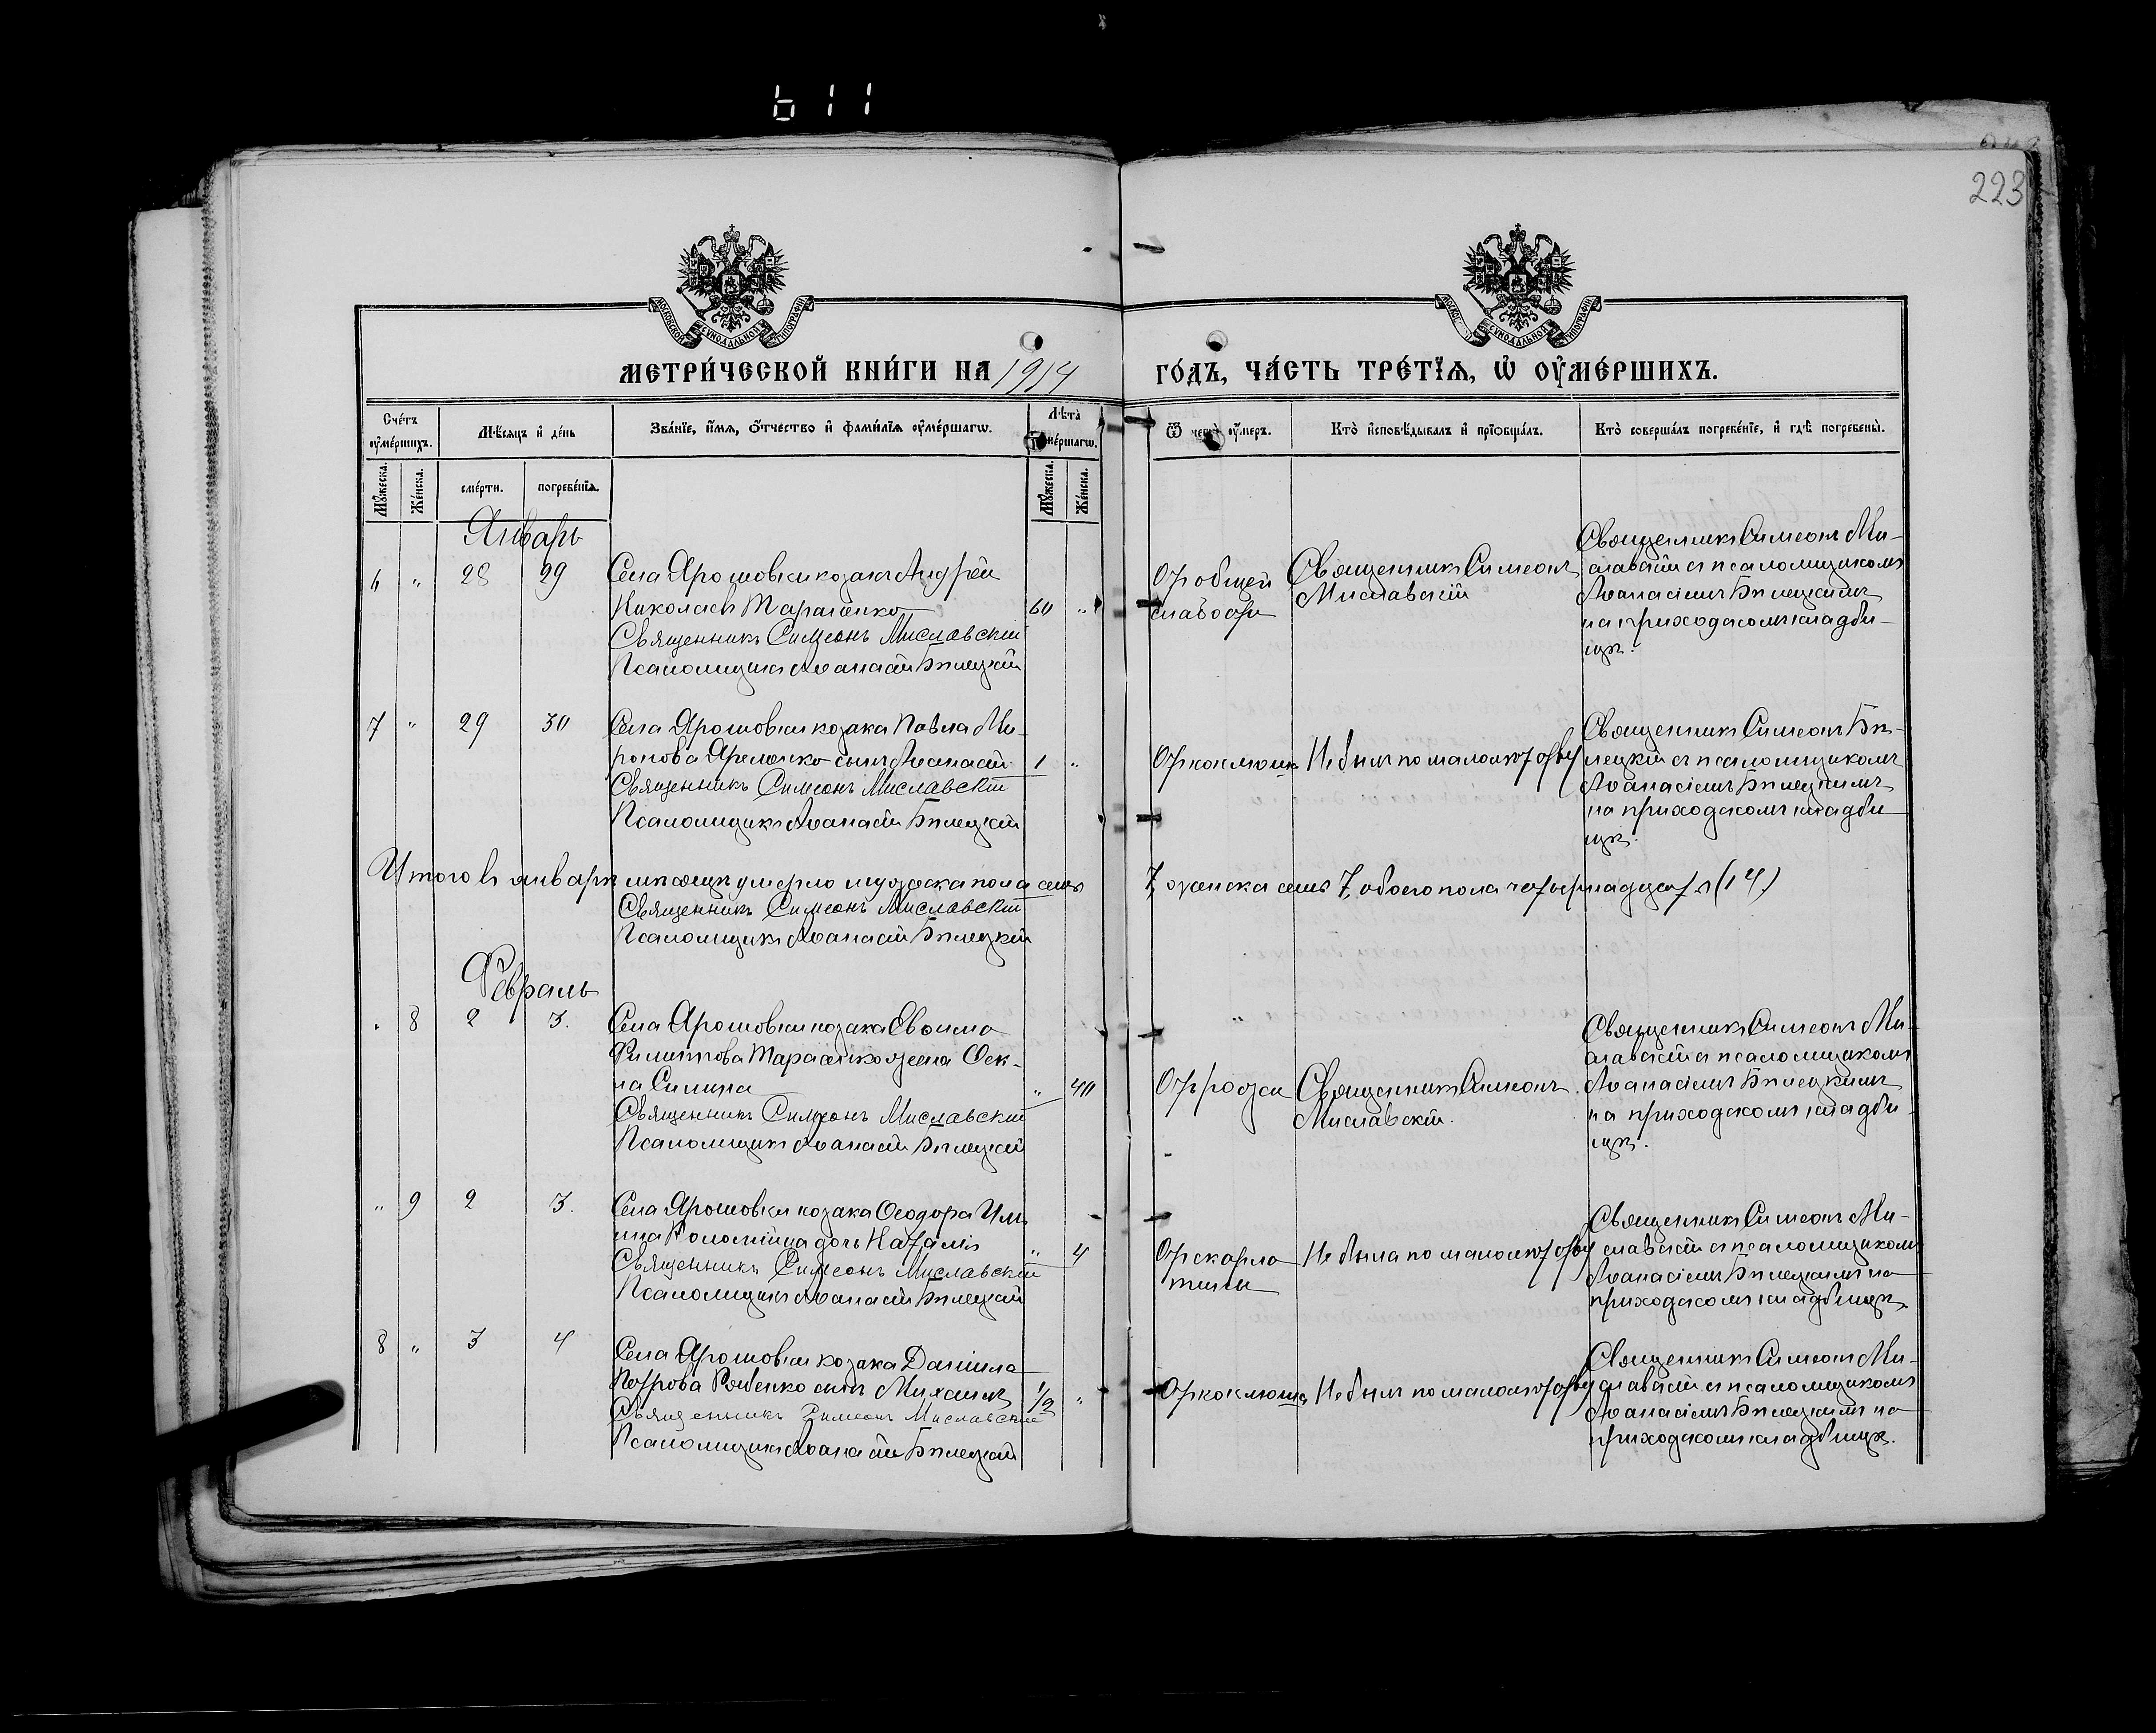 223
МЕТРИ́ЧЕСКОЙ КНИ́ГИ НА 1914 ГО́ДЪ, ЧА́СТЬ ТРЕ́ТЇѦ, Ѡ҆ ОУ҆МЕ́РШИХЪ.
Сче́тъ оу҆ме́ршихъ.
Мѣ́сяцъ и҆ де́нь
Зва́нїе, и҆́мя, ѻ҆́тчество и҆ фами́лїя оу҆ме́ршагѡ.
Лѣ́та оу҆ме́ршагѡ.
Ѿ чегѡ̀ оу҆́меръ.
Кто̀ и҆сповѣ́дывалъ и҆ прїѡбща́лъ.
Кто̀ соверша́лъ погребе́нїе, и҆ гдѣ̀ погребены̀.
Му́жеска.
Же́нска.
сме́рти.
погребе́нїя.
Му́жеска.
Же́нска.
Январь
6 " 28 29 Села Ярошовки козакъ Андрей
Николаевъ Тарасенко 60 "
Священникъ Симеонъ Миславскій
Псаломщикъ Аѳанасій Бѣлецкій
От общей
слабости
Священникъ Симеонъ
Миславскій
Священникъ Симеонъ Ми-
славскій съ псаломщикомъ
Аѳанасіемъ Бѣлецкимъ
на приходскомъ кладби-
щѣ.
7 " 29 30 Села Ярошовки козака Павла Ми-
ронова Яременко сынъ Аѳанасій 1 "
Священникъ Симеонъ Миславскій
Псаломщикъ Аѳанасій Бѣлецкій
От коклюша
Не былъ по малолѣтству
Священникъ Симеонъ Бѣ-
лецкій съ псаломщикомъ
Аѳанасіемъ Бѣлецкимъ
на приходскомъ кладби-
щѣ.
Итого въ январѣ мѣсяцѣ умерло мужеска пола семь 7, женска семь 7, обоего пола четырнадцать (14)
Священникъ Симеонъ Миславскій
Псаломщикъ Аѳанасій Бѣлецкій
Февраль
" 8 2 3. Села Ярошовки козака Евѳима
Филиппова Тарасенко жена Ѳек-
ла " 40
Священникъ Симеонъ Миславскій
Псаломщикъ Аѳанасій Бѣлецкій
От рожи
Священникъ Симеонъ
Миславскій.
Священникъ Симеонъ Ми-
славскій съ псаломщикомъ
Аѳанасіемъ Бѣлецкимъ
на приходскомъ кладби-
щѣ.
" 9 2 3. Села Ярошовки козака Ѳеодора Иль-
ина Коломійца дочь Наталія " 4
Священникъ Симеонъ Миславскій
Псаломщикъ Аѳанасій Бѣлецкій
От скарла-
тины
Не была по малолѣтству
Священникъ Симеонъ Ми-
славскій съ псаломщикомъ
Аѳанасіемъ Бѣлецкимъ на
приходскомъ кладбищѣ.
8 " 3 4 Села Ярошовки козака Даніила
Петрова Рябенко сынъ Михаилъ 1/2 "
Священникъ Симеонъ Миславскій
Псаломщикъ Аѳанасій Бѣлецкій
От коклюша
Не былъ по малолѣтству
Священникъ Симеонъ Ми-
славскій съ псаломщикомъ
Аѳанасіемъ Бѣлецкимъ на
приходскомъ кладбищѣ.